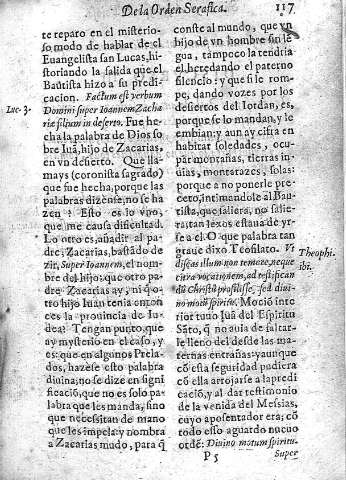 De la Orden Serafica. 117
te reparo en el misterio-
so modo de hablar de el
Euangelista san Lucas, hi-
storiando la salida que el
Bautista hizo a su predi-
cacion. Factum est verbum
Luc. 3. Domini super Ioannem Zacha
riæ filium in deserto. Fue he
cha la palabra de Dios so-
bre Iuã, hijo de Zacarias,
en vn desierto. Que lla-
mays (coronista sagrado)
que fue hecha, porque las
palabras dizense, no se ha
zen? Esto es lo vno,
que me causa dificultad.
Lo otro es, añadir al pa-
dre; Zacarias, bastãdo de-
zir, Super Ioannem, el nom
bre del hijo: que otro pa-
dre Zacarias ay, ni q̃ o-
tro hijo Iuan tenia enton
ces la prouincia de Iu-
dea? Tengan punto, que
ay mysterio en el caso, y
es: que en algunos Prela-
dos, hazese esto palabra
diuina; no se dize en signi
ficaciõ, que no es solo pa
labra que les manda, sino
que necessitan de mano
que les impela: y nombra
a Zacarias mudo, para q̃
conste al mundo, que vn
hijo de vn hombre sin le
gua, tampoco la tendria
el, heredando el paterno
silencio: y que si le rom-
pe, dando vozes por los
desiertos del Iordan, es,
porque se lo mandan, y le
embian: y aun ay cifra en
habitar soledades, ocu-
par montañas, tierras in-
uias, montarazes, solas:
porque a no ponerle pre-
ceto, intimãdole al Bau-
tista, que saliera, no salie-
ra: tan lexos estaua de yr-
se a el. O que palabra tan
graue dixo Teofilato. Vt
Theophi-
ibi.
discas illum non temere, neque
citra vocationem, ad testifican
dũ Christũ prosilisse, sed diui-
no motu spiritus. Mociõ inte
rior tuuo Iuã del Espiritu
Sãto, q̃ no auia de saltar-
le lleno del desde las ma-
ternas entrañas: y aunque
cõ esta seguridad pudiera
cõ ella arrojarse a la predi
cació, y al dar testimonio
de la venida del Messias,
cuyo aposentador era; cõ
todo esso aguardo nueuo
ordẽ: Diuino motum spiritu.
P 5 Super